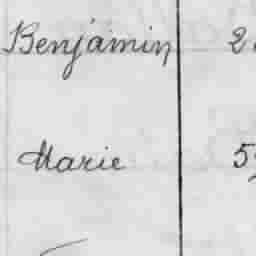 Benjamin 2
Marie 5